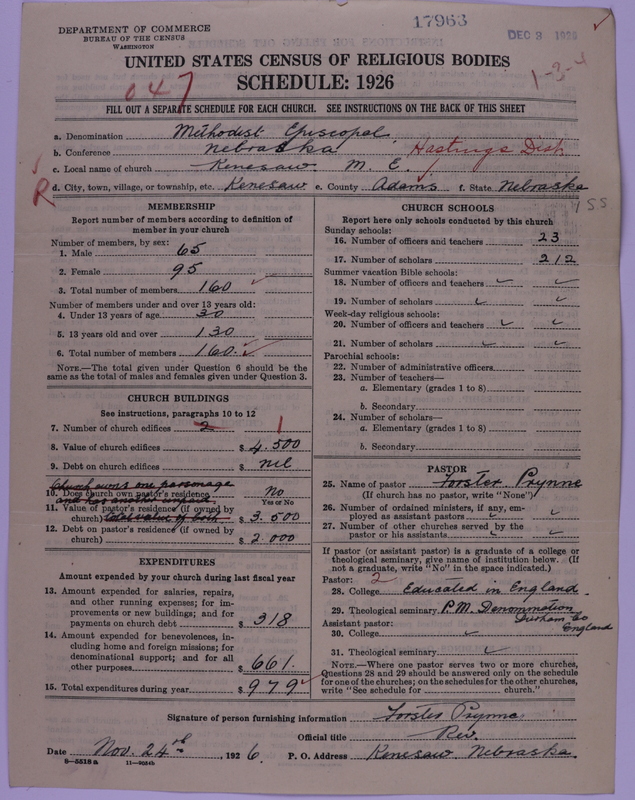 DEPARTMENT OF COMMERCE
BUREAU OF THE CENSUS
WASHINGTON
17963
DEC 3 1926
1-3-4
UNITED STATES CENSUS OF RELIGIOUS BODIES
SCHEDULE: 1926
047
FILL OUT A SEPARATE SCHEDULE FOR EACH CHURCH. SEE INSTRUCTIONS ON THE BACK OF THIS SHEET
a. Denomination Methodist Episcopal
b. Conference Nebraska Hastings Dist
c. Local name of church Kenesaw M. E.
R
d. City, town, village, or township, etc. Kenesaw e. County Adams f. State Nebraska
155
MEMBERSHIP
Report number of members according to definition of
member in your church
Number of members, by sex:
1. Male 65
2. Female 95
3. Total number of members 160
Number of members under and over 13 years old:
4. Under 13 years of age 30
5. 13 years old and over 130
6. Total number of members 160
NOTE.—The total given under Question 6 should be
the same as the total of males and females given under Question 3.
CHURCH BUILDINGS
See instructions, paragraphs 10 to 12
7. Number of church edifices 2 1
8. Value of church edifices $ 4.500
9. Debt on church edifices $ nil
Church owns one parsonage
10. Does church own pastor's residence No
and has another unpaid.
Yes or No
11. Value of pastor's residence (if owned by
church) total value of both $ 3.500
12. Debt on pastor's residence (if owned by
church) $ 2.000
EXPENDITURES
Amount expended by your church during last fiscal year
13. Amount expended for salaries, repairs,
and other running expenses; for im-
provements or new buildings; and for
payments on church debt $ 318
14. Amount expended for benevolences, in-
cluding home and foreign missions; for
denominational support; and for all
other purposes $ 661
15. Total expenditures during year $ 979
CHURCH SCHOOLS
Report here only schools conducted by this church
Sunday schools:
16. Number of officers and teachers 23
17. Number of scholars 212
Summer vacation Bible schools:
18. Number of officers and teachers
19. Number of scholars
Week-day religious schools:
20. Number of officers and teachers
21. Number of scholars
Parochial schools:
22. Number of administrative officers
23. Number of teachers—
a. Elementary (grades 1 to 8)
b. Secondary
24. Number of scholars—
a. Elementary (grades 1 to 8)
b. Secondary
PASTOR
25. Name of pastor Forster Prynne
(If church has no pastor, write "None")
26. Number of ordained ministers, if any, em-
ployed as assistant pastors
27. Number of other churches served by the
pastor or his assistants
If pastor (or assistant pastor) is a graduate of a college or
theological seminary, give name of institution below. (If
not a graduate, write "No" in the space indicated.)
Pastor: 2
28. College Educated in England
29. Theological seminary P.M. Denomination
Durham Co
England
Assistant pastor:
30. College
31. Theological seminary
NOTE.—Where one pastor serves two or more churches,
Questions 28 and 29 should be answered only on the schedule
for one of the churches; on the schedules for the other churches,
write "See schedule for church."
Signature of person furnishing information Forster Prynne
Official title Rev.
Date Nov. 24th, 1926. P. O. Address Kenesaw Nebraska.
8—5518 a 11—9034b